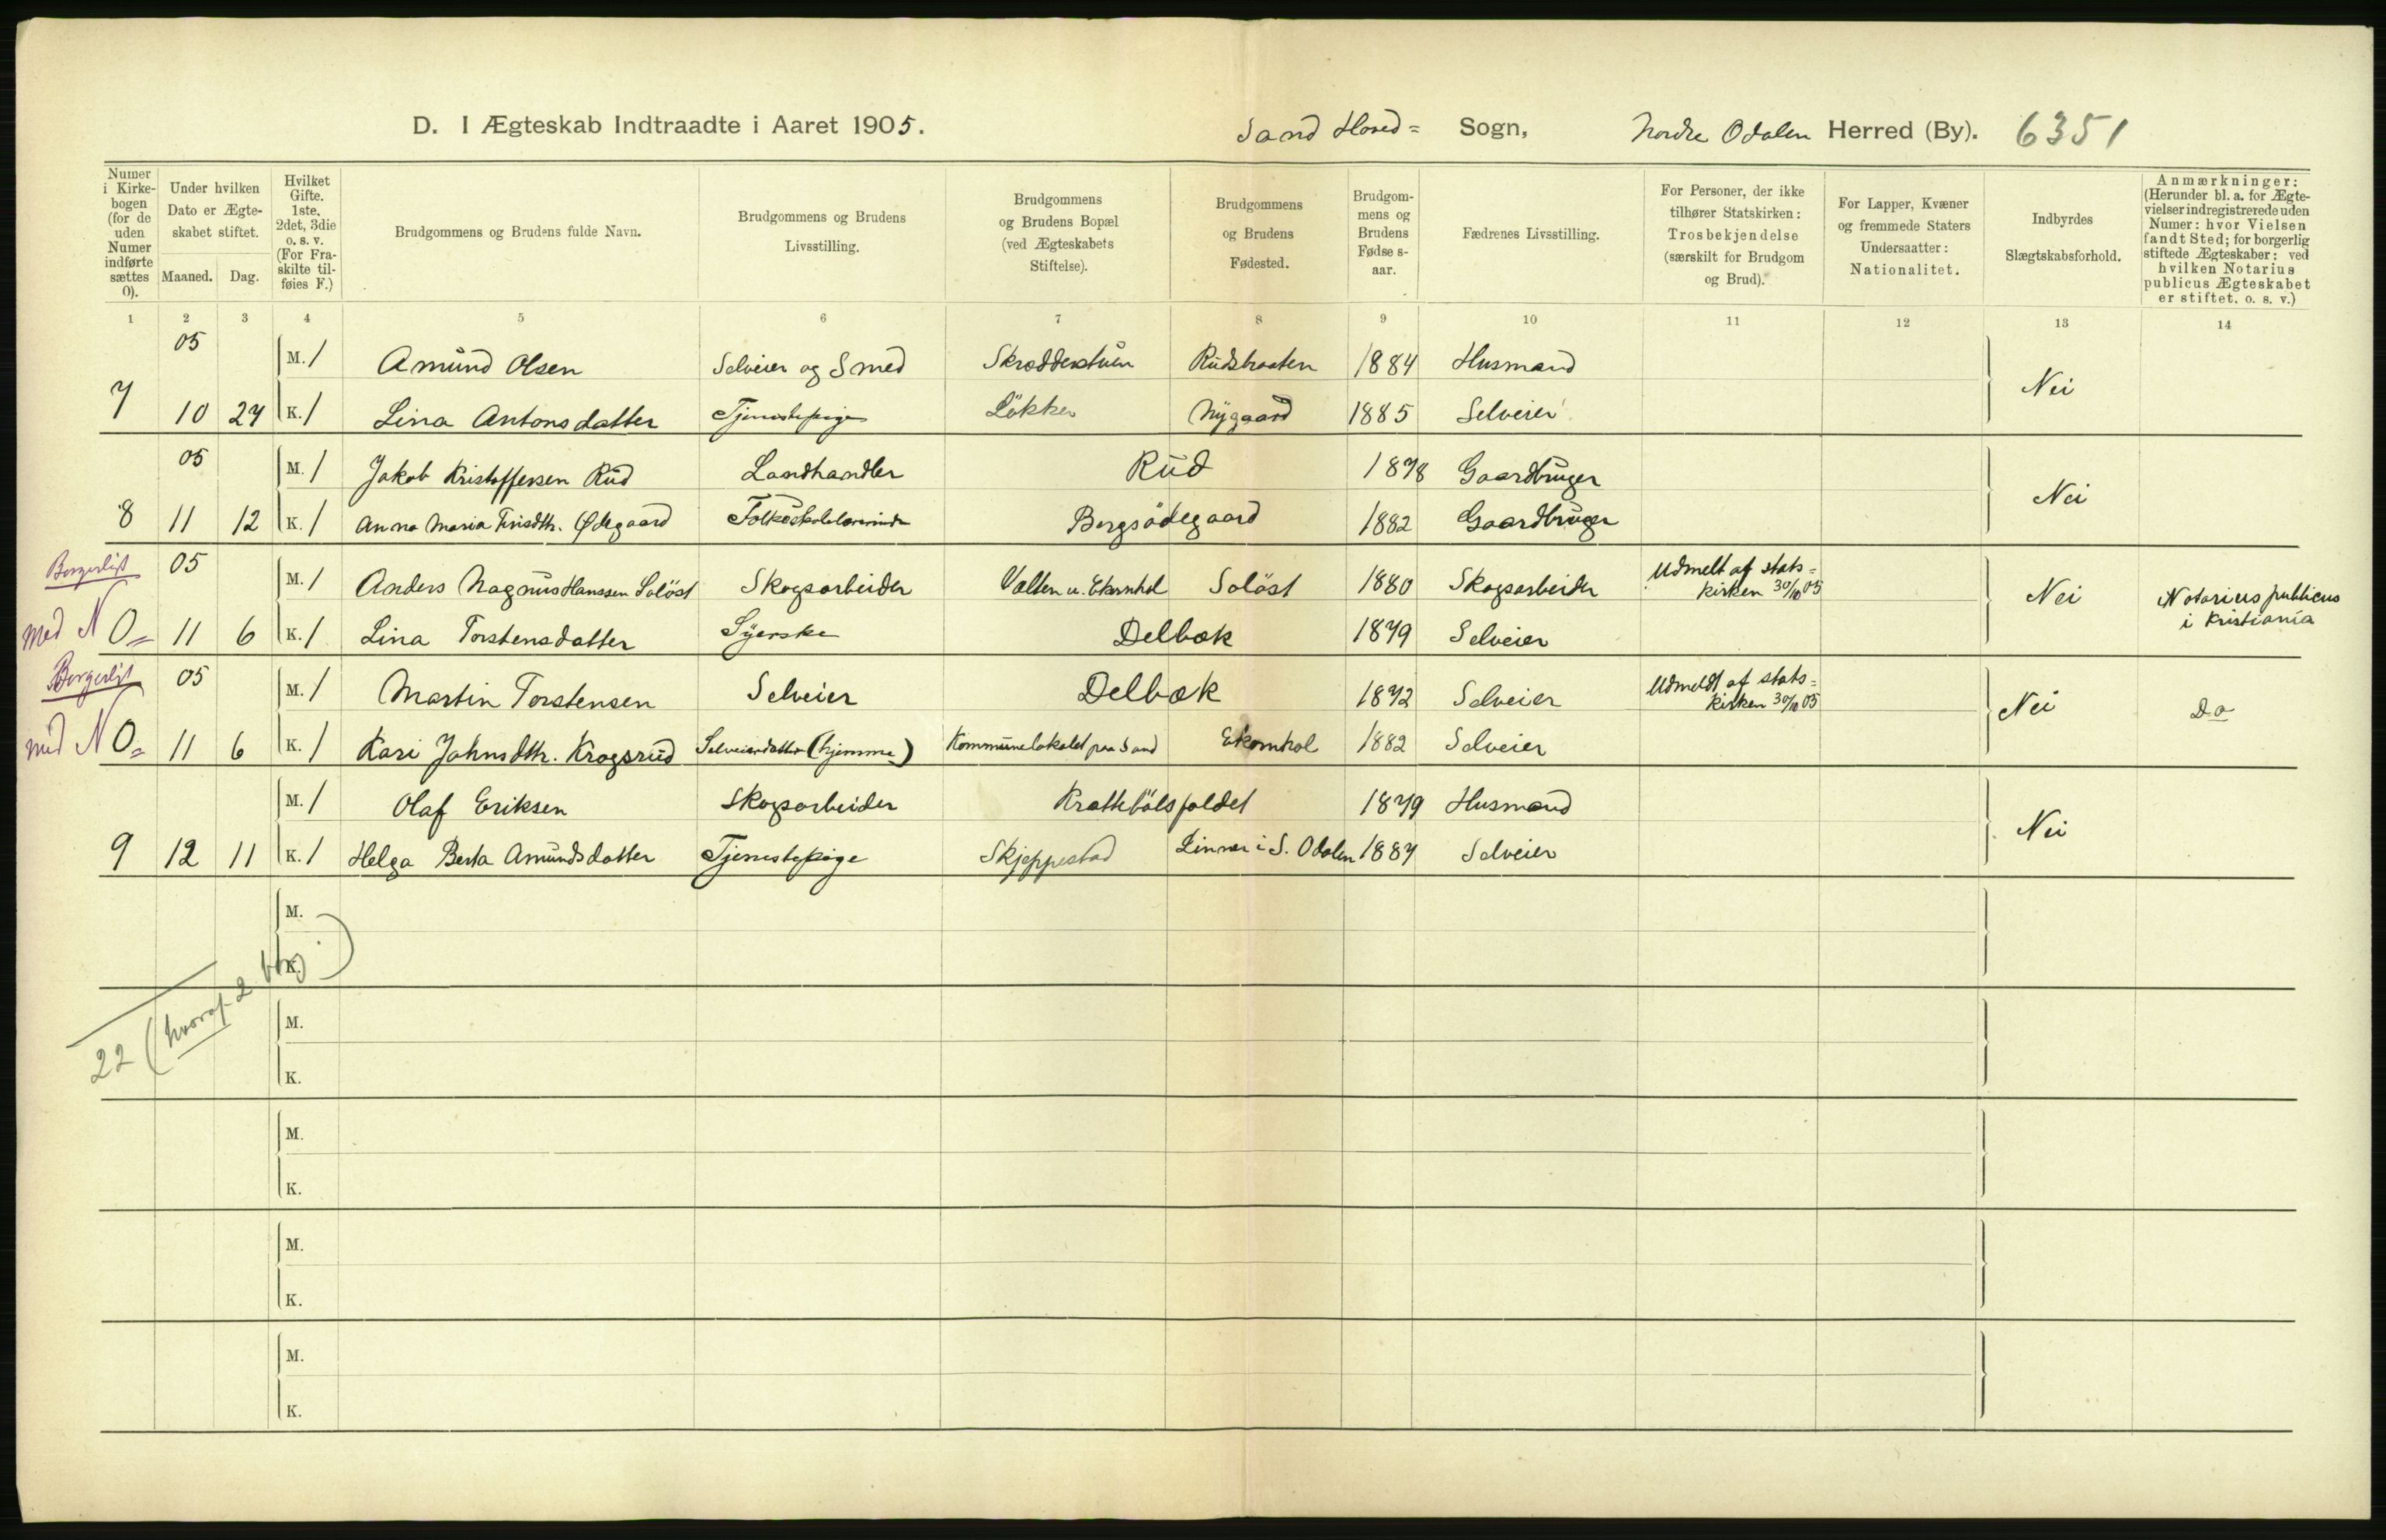 D. I Ægteskab Indtraadte i Aaret 1905. Sand Hoved= Sogn, Nordre Odalen Herred (By). 6351
Numer i Kirkebogen (for de uden Numer indførte sættes 0). | Under hvilken Dato er Ægteskabet stiftet. Maaned. Dag. | Hvilket Gifte. 1ste, 2det, 3die o. s. v. (For Fraskilte tilføies F.) | Brudgommens og Brudens fulde Navn. | Brudgommens og Brudens Livsstilling. | Brudgommens og Brudens Bopæl (ved Ægteskabets Stiftelse). | Brudgommens og Brudens Fødested. | Brudgommens og Brudens Fødselsaar. | Fædrenes Livsstilling. | For Personer, der ikke tilhører Statskirken: Trosbekjendelse (særskilt for Brudgom og Brud). | For Lapper, Kvæner og fremmede Staters Undersaatter: Nationalitet. | Indbyrdes Slægtskabsforhold. | Anmærkninger: (Herunder bl. a. for Ægtevielser indregistrerede uden Numer: hvor Vielsen fandt Sted; for borgerlig stiftede Ægteskaber: ved hvilken Notarius publicus Ægteskabet er stiftet. o. s. v.)
1 2 3 4 5 6 7 8 9 10 11 12 13 14
05 M. 1 Amund Olsen Selveier og Smed Skrædderstuen Rudsbraaten 1884 Husmand Nei
7 10 27 K. 1 Lina Antonsdatter Tjenestepige Løkken Nygaard 1885 Selveier
05 M. 1 Jakob Kristoffersen Rud Landhandler Rud 1878 Gaardbruger Nei
8 11 12 K. 1 Anna Maria Finsdtr. Ødegaard Folkeskolelærerinde Bergsødegaard 1882 Gaardbruger
Borgerligt 05 M. 1 Anders Magnus Hanssen Soløst Skogsarbeider Valten u. Ekornhol Soløst 1880 Skogsarbeider Udmelt af statskirken 30/10 05 Nei Notarius publicus i Kristiania
med N 0= 11 6 K. 1 Lina Torstensdatter Syerske Delbæk 1879 Selveier
Borgerligt 05 M. 1 Martin Torstensen Selveier Delbæk 1872 Selveier Udmeldt af statskirken 30/10 05 Nei Do
med N 0= 11 6 K. 1 Kari Johnsdtr. Krogsrud Selveierdatter (hjemme) Kommunelokalet paa Sand Ekornhol 1882 Selveier
M. 1 Olaf Eriksen Skogsarbeider Krattebølsfaldet 1879 Husmand Nei
9 12 11 K. 1 Helga Berta Amundsdatter Tjenestepige Skjeppestad Linnes i S. Odalen 1887 Selveier
M.
K.
22 (hvoraf 2 borg.)
M.
K.
M.
K.
M.
K.
M.
K.